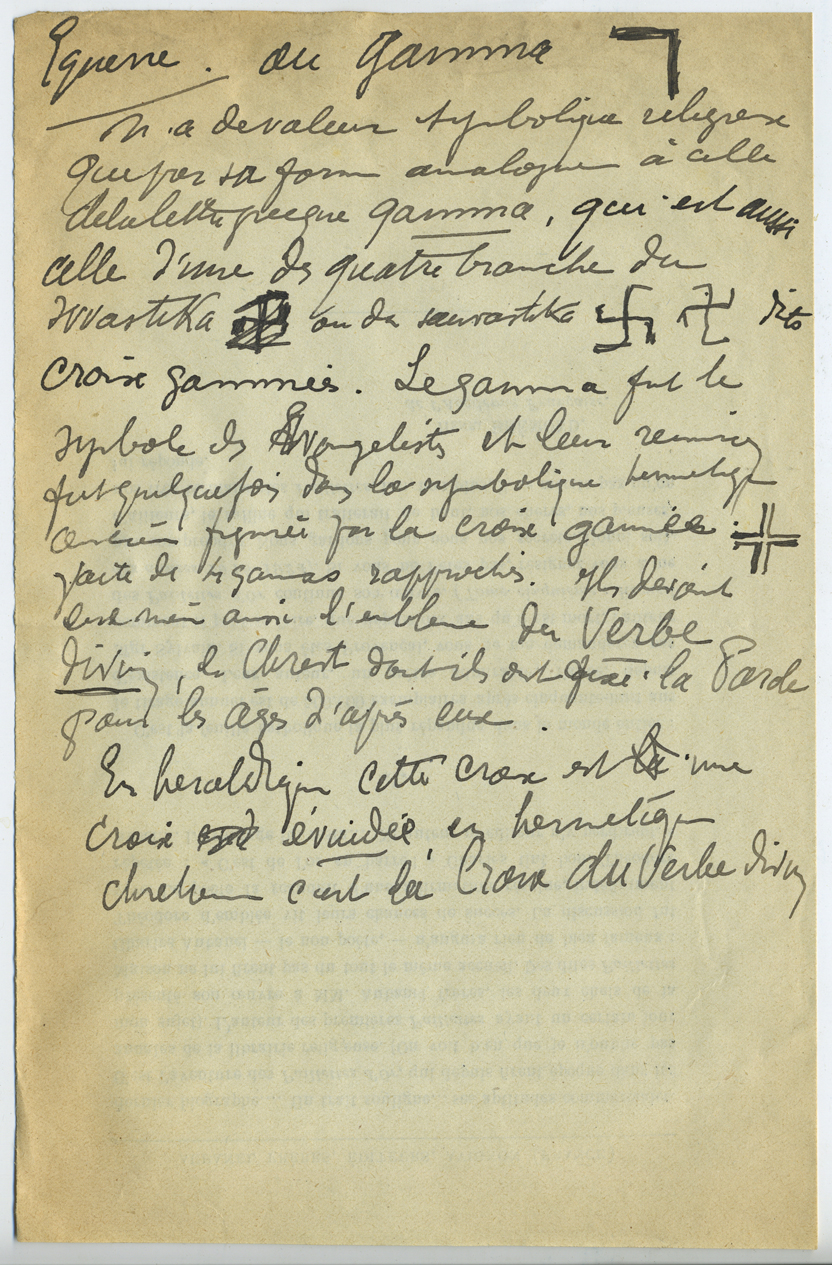 Equerre . ou gamma
N'a de valeur symbolique religieuse
que par sa forme analogue à celle
de la lettre grecque gamma, qui est aussi
celle d'une des quatre branche du
swastika ou du sauvastika dits
croix gammées. Le gamma fut le
symbole des Evangelistes et leur reunion
fut quelquefois dans la symbolique hermetique
figurée par la croix gammée.
faite de 4 gammas rapprochés. Ils devaient
ainsi l'embleme du Verbe
divin, du Christ dont ils ont fixé la Parole
pour les âges d'après eux.
En heraldique cette croix est une
croix évuidée, en hermetique
chretienne c'est la Croix du Verbe divin